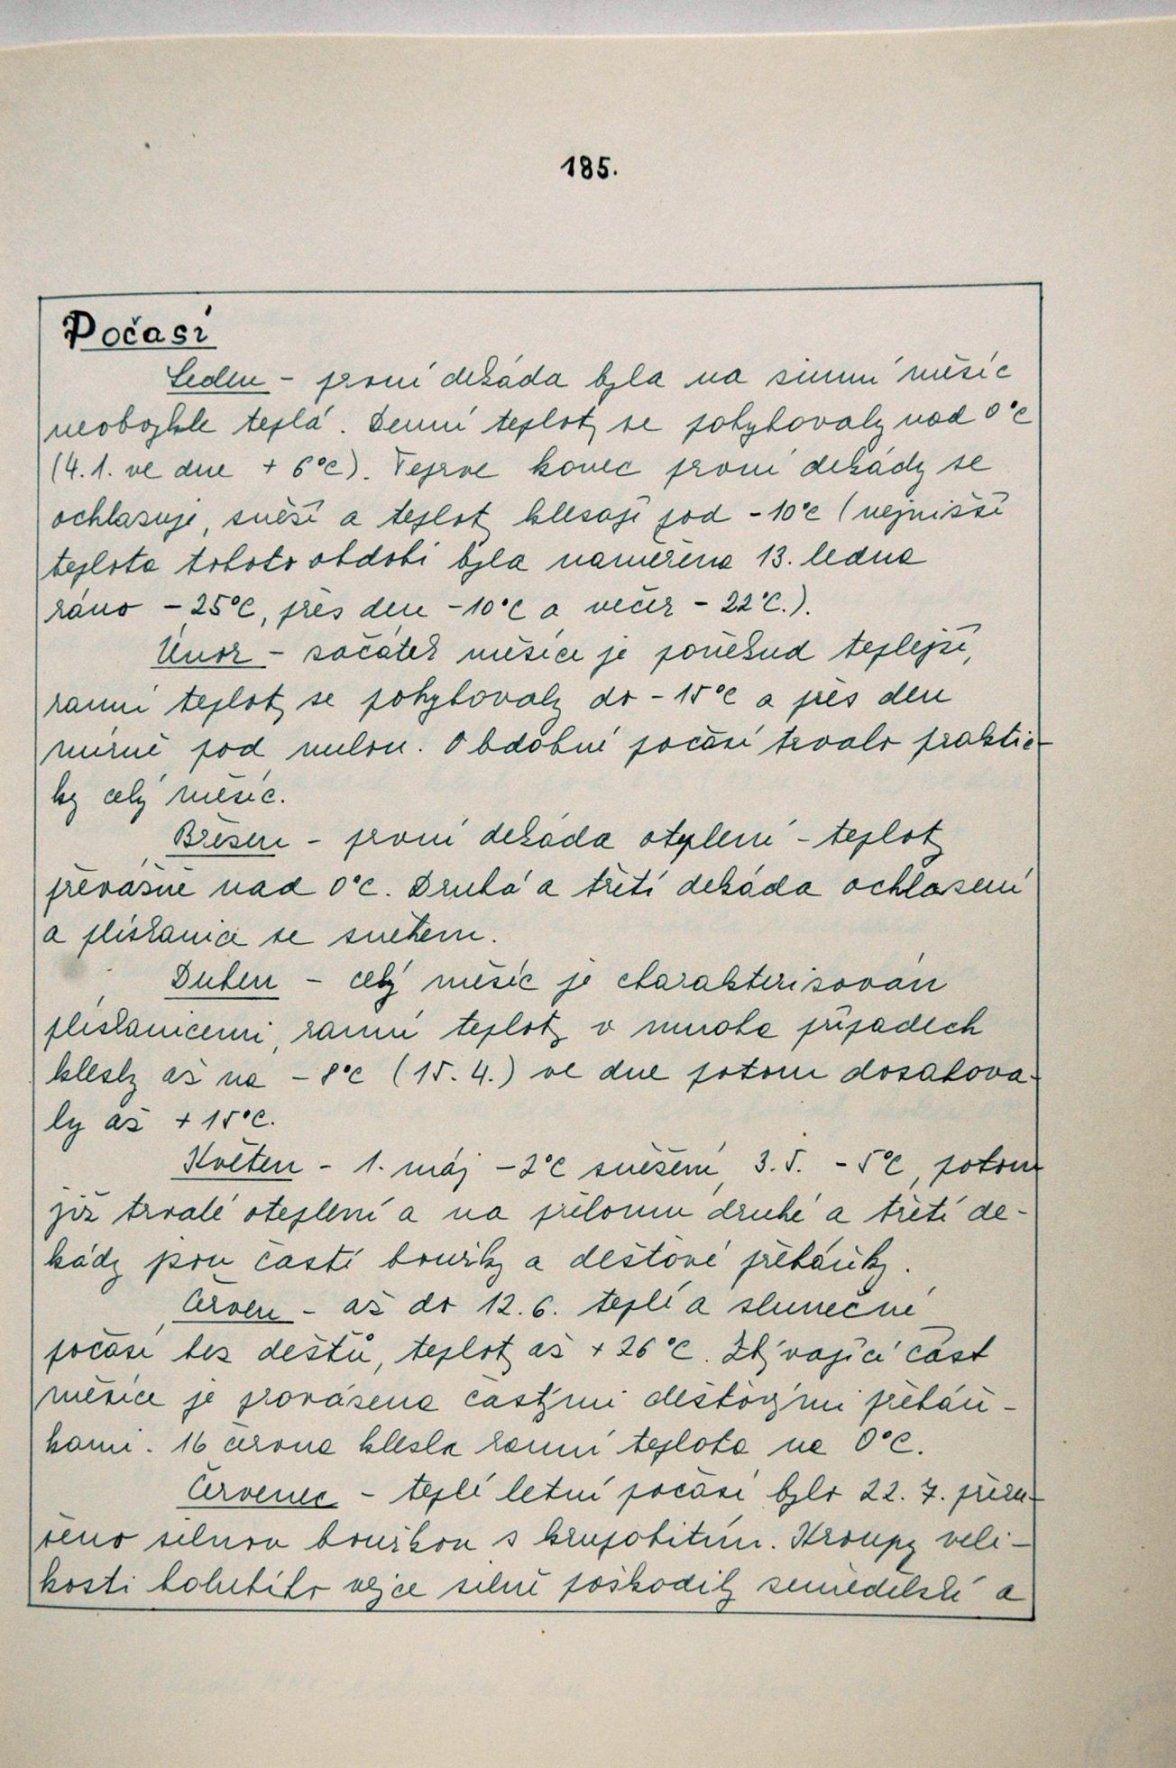 185.
Počasí
Leden - první dekáda byla na zimní měsíc
neobvykle teplá. Denní teploty se pohybovaly nad 0°C
(4.1. ve dne + 6°C). Teprve konec první dekády se
ochlazuje, sněží a teploty klesají pod -10°C (nejnižší
teplota tohoto období byla naměřena 13. ledna
ráno - 25°C, přes den -10°C a večer - 22°C.).
Únor - začátek měsíce je poněkud teplejší,
ranní teploty se pohybovaly do -15°C a přes den
mírně pod nulou. Obdobné počasí trvalo praktic-
ky celý měsíc.
Březen - první dekáda oteplení - teploty
převážně nad 0°C. Druhá a třetí dekáda ochlazení
a plískanice se sněhem.
Duben - celý měsíc je charakterisován
plískanicemi, ranní teploty v mnoha případech
klesly až na - 8°C (15. 4.) ve dne potom dosahova-
ly až + 15°C.
Květen - 1. máj -2°C sněžení, 3.5. - 5°C, potom
již trvalé oteplení a na přelomu druhé a třetí de-
kády jsou časté bouřky a dešťové přeháňky.
Červen - až do 12.6. teplé a slunečné
počasí bez dešťů, teploty až + 26°C. Zbývající část
měsíce je provázena častými dešťovými přeháň-
kami. 16 června klesla ranní teplota na 0°C.
Červenec - teplé letní počasí bylo 22. 7. přeru-
šeno silnou bouřkou s krupobitím. Kroupy veli-
kosti holubího vejce silně poškodily zemědělské a